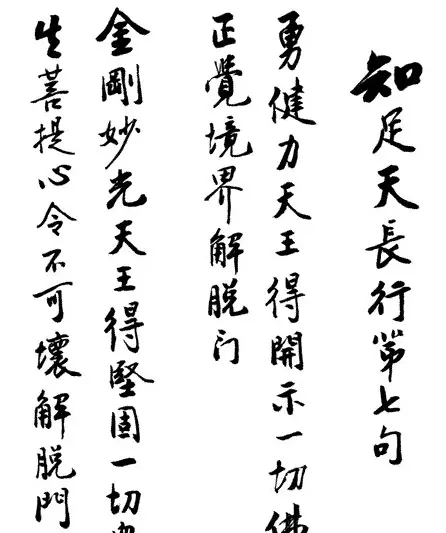 知足天長行第七句
勇健力天王得開示一切佛
正覺境界解脫门
金剛妙光天王得堅固一切
生菩提心令不可壞解脫門